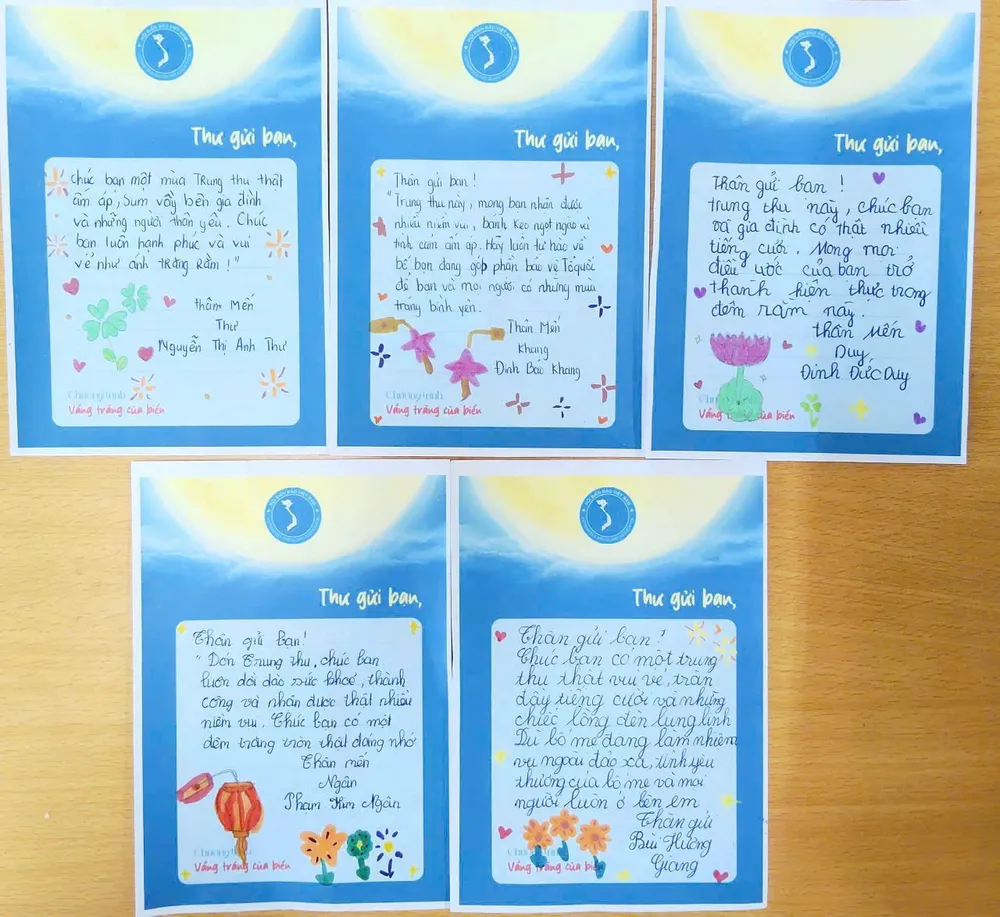 HỘI BIỂN ĐẢO VIỆT NAM
Thư gửi bạn,
Chúc bạn một mùa Trung thu thật
ấm áp, sum vầy bên gia đình
và những người thân yêu. Chúc
bạn luôn hạnh phúc và vui
vẻ như ánh trăng Rằm !"
thâm Mến
Thư
Nguyễn Thị Anh Thư
Chương trình
Vầng trăng của biển
Thư gửi bạn,
Thân gửi bạn !
"Trung thu này, mong bạn nhận được
nhiều niềm vui, bánh kẹo ngọt ngào và
tình cảm ấm áp. Hãy luôn tự hào về
bố bạn đang góp phần bảo vệ Tổ quốc
để bạn và mọi người có những mùa
trăng bình yên.
Thân Mến
Khang
Đinh Bảo Khang
Chương trình
Vầng trăng của biển
Thư gửi bạn,
Thân gửi bạn !
trung thu này, chúc bạn
và gia đình có thật nhiều
tiếng cười. Mong mọi
điều ước của bạn trở
thành hiện thực trong
đêm rằm này.
thân Mến
Duy
Đinh Đức Duy
Vầng trăng của biển
Thư gửi bạn,
Thân gửi bạn!
"Đón Trung thu, chúc bạn
luôn dồi dào sức khoẻ, thành
công và nhận được thật nhiều
niềm vui. Chúc bạn có một
đêm trăng tròn thật đáng nhớ
Thân mến
Ngân
Phạm Kim Ngân
Vầng trăng của biển
Thư gửi bạn,
Thân gửi bạn !
Chúc bạn có một trung
thu thật vui vẻ, tràn
đầy tiếng cười và những
chiếc lồng đèn lung linh
Dù bố mẹ đang làm nhiệm
vụ ngoài đảo xa, tình yêu
thương của bố mẹ và mọi
người luôn ở bên em
Thân gửi
Bùi Hương
Giang
Vầng trăng của biển